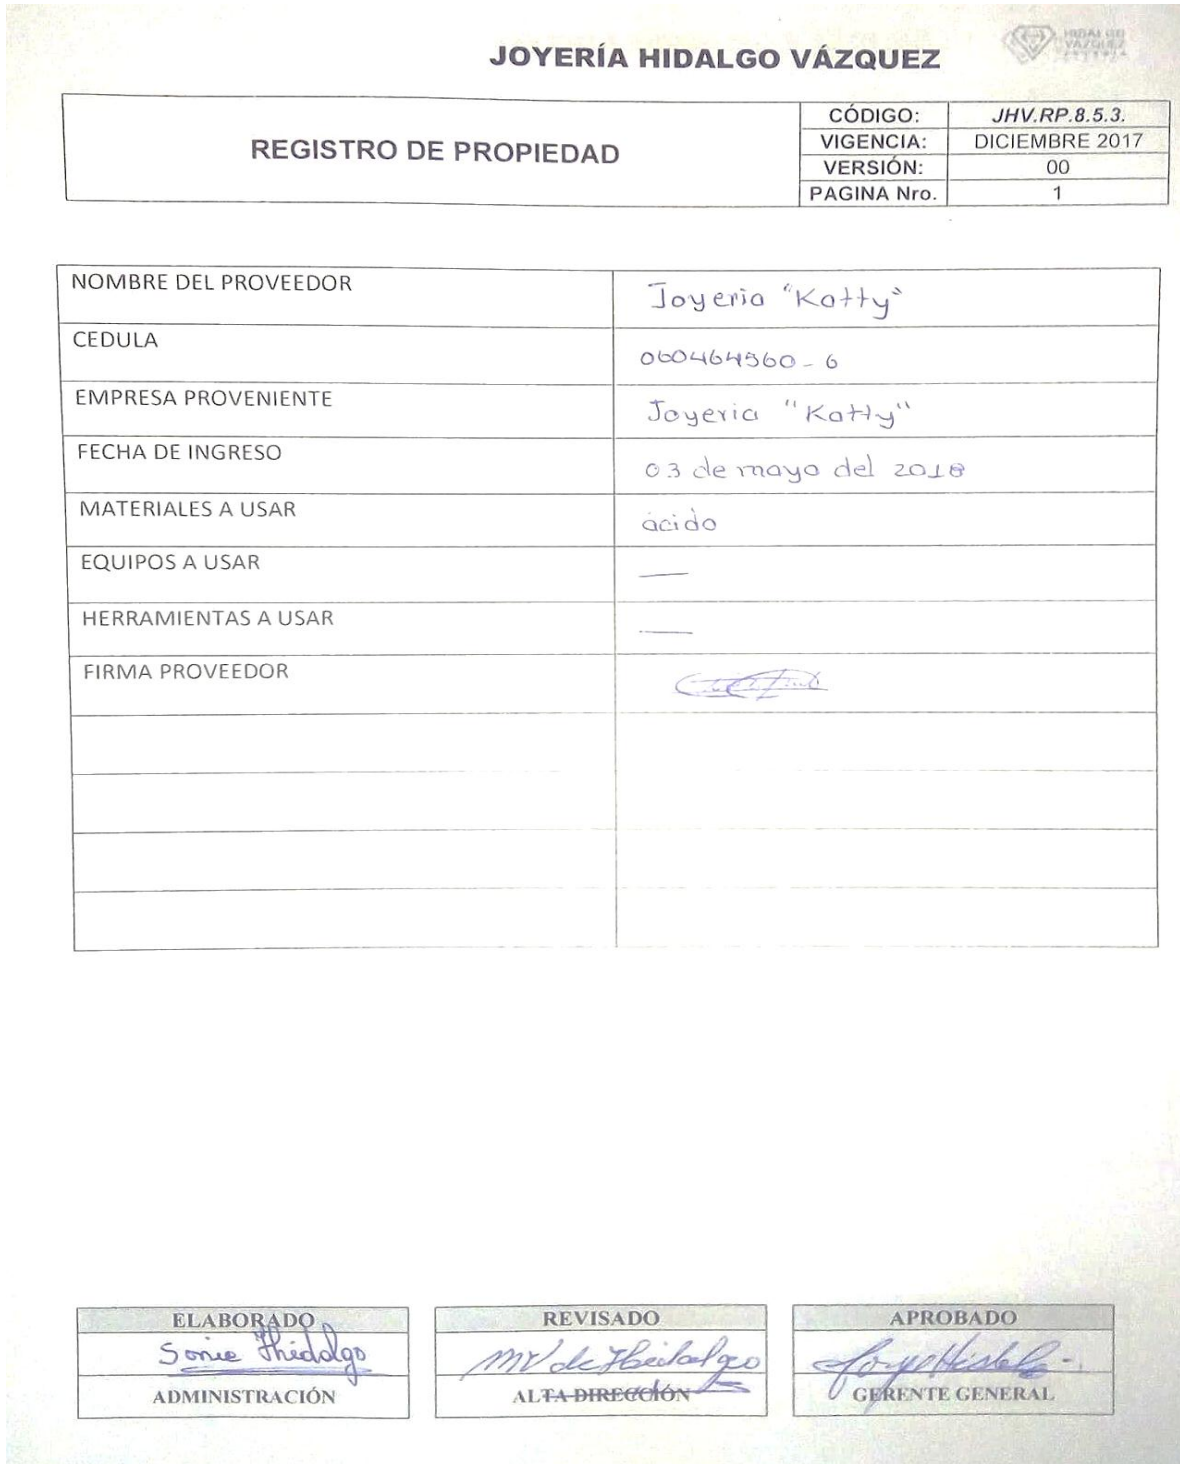 HIDALGO
VÁZQUEZ
JOYERÍA HIDALGO VÁZQUEZ
REGISTRO DE PROPIEDAD
CÓDIGO: JHV.RP.8.5.3.
VIGENCIA: DICIEMBRE 2017
VERSIÓN: 00
PAGINA Nro. 1
NOMBRE DEL PROVEEDOR Joyeria "Katty"
CEDULA 060464560-6
EMPRESA PROVENIENTE Joyeria "Katty"
FECHA DE INGRESO 03 de mayo del 2018
MATERIALES A USAR ácido
EQUIPOS A USAR —
HERRAMIENTAS A USAR —
FIRMA PROVEEDOR
ELABORADO
Sonia Hidalgo
ADMINISTRACIÓN
REVISADO
MV de Hidalgo
ALTA DIRECCIÓN
APROBADO
Jorge Hidalgo
GERENTE GENERAL